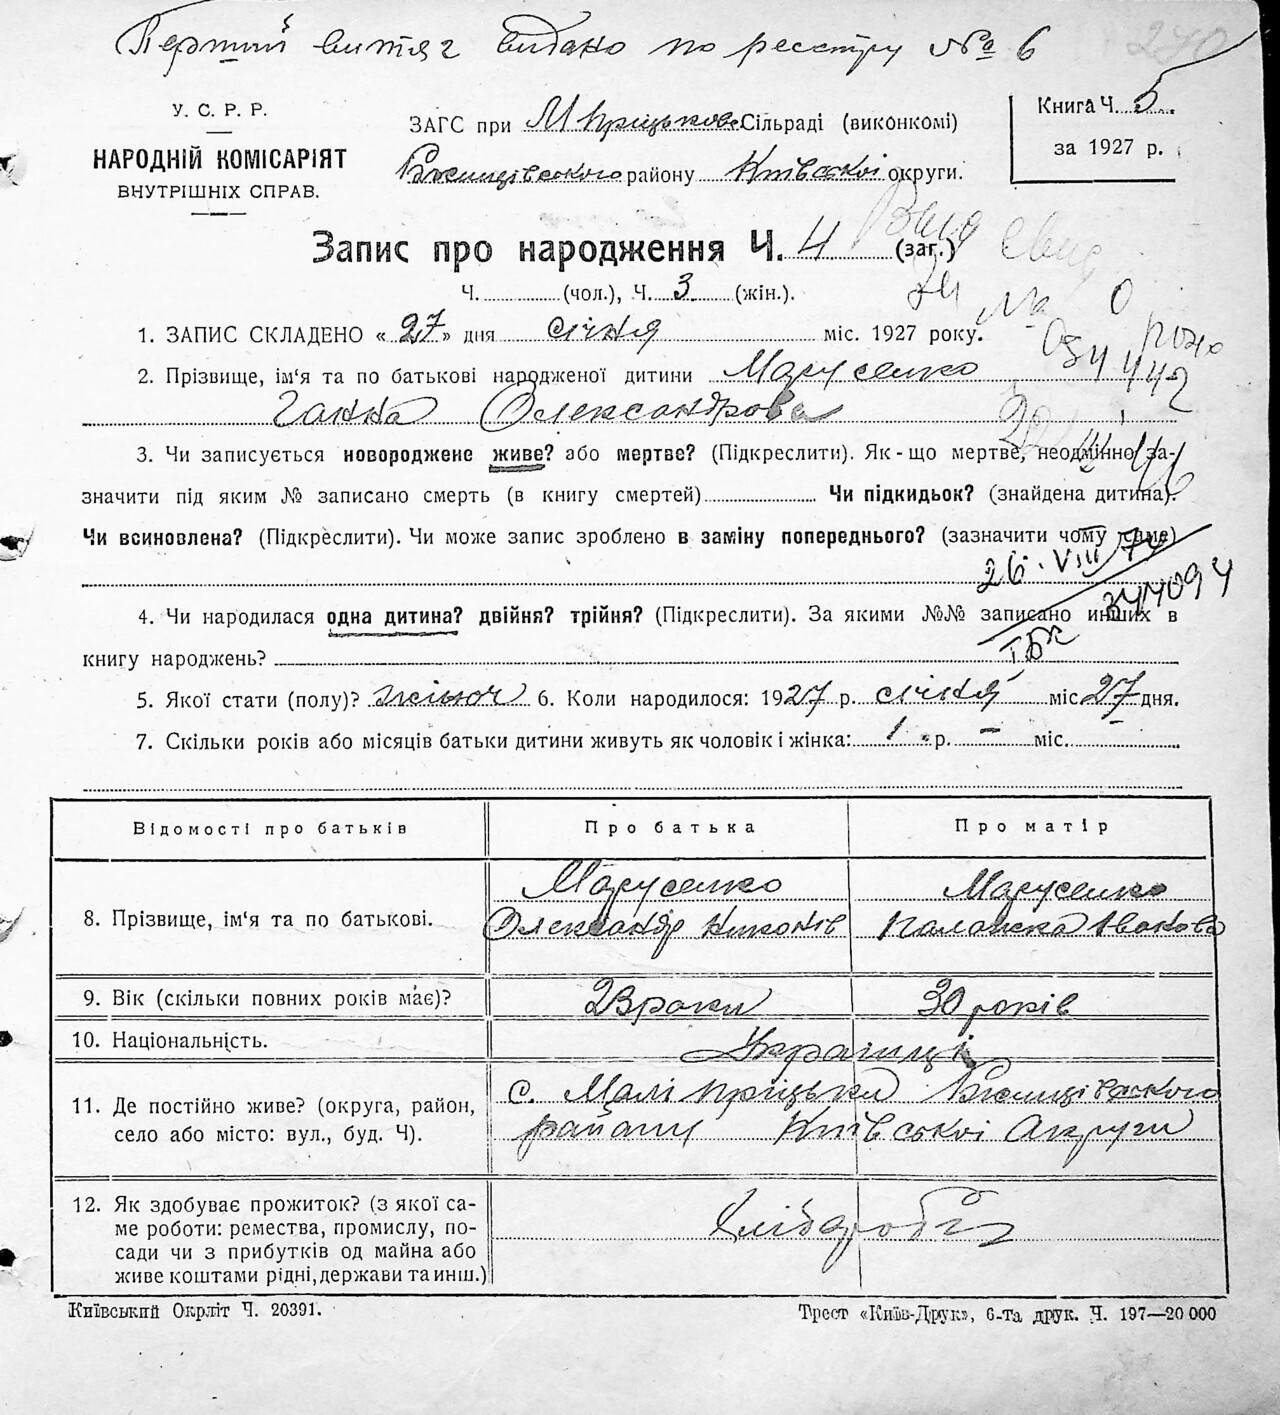 Перший витяг видано по реєстру № 6
270
У. С. Р. Р.
НАРОДНІЙ КОМІСАРІЯТ
ВНУТРІШНІХ СПРАВ.
ЗАГС при М Пріцьков Сільраді (виконкомі)
району Київської округи.
Книга Ч. 5.
за 1927 р.
Запис про народження Ч. 4 (заг.)
Ч. (чол.), Ч. 3 (жін.).
1. ЗАПИС СКЛАДЕНО « 27 » дня січня міс. 1927 року.
2. Прізвище, ім'я та по батькові народженої дитини Марусенко
Ганна Олександрова
3. Чи записується новороджене живе? або мертве? (Підкреслити). Як-що мертве, неодмінно за-
значити під яким № записано смерть (в книгу смертей) Чи підкидьок? (знайдена дитина).
Чи всиновлена? (Підкреслити). Чи може запис зроблено в заміну попереднього? (зазначити чому саме)
26. VIII 74
344094
4. Чи народилася одна дитина? двійня? трійня? (Підкреслити). За якими №№ записано инших в
книгу народжень?
5. Якої стати (полу)? жіноч 6. Коли народилося: 1927 р. січня міс 27 дня.
7. Скільки років або місяців батьки дитини живуть як чоловік і жінка: 1 р. – міс.
Відомості про батьків Про батька Про матір
8. Прізвище, ім'я та по батькові. Марусенко Олександр Никонів Марусенко Палажка Іванова
9. Вік (скільки повних років має)? роки 30 років
10. Національність. Українці
11. Де постійно живе? (округа, район, село або місто: вул., буд. Ч). с. Малі Пріцьки
району Київської Округи
12. Як здобуває прожиток? (з якої са-
ме роботи: ремества, промислу, по-
сади чи з прибутків од майна або
живе коштами рідні, держави та инш.) Хлібороб
Київський Окрліт Ч. 20391.
Трест «Київ-Друк», 6-та друк. Ч. 197—20 000